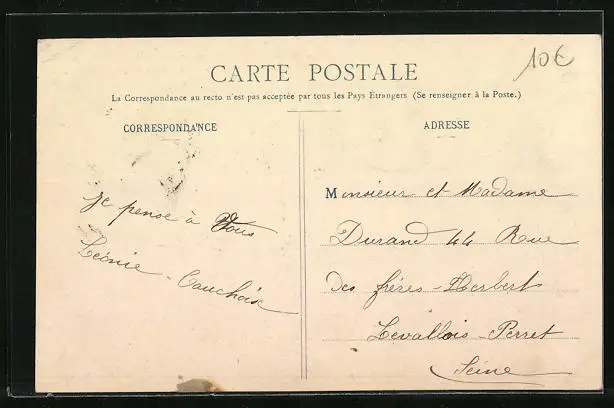 10€
CARTE POSTALE
La Correspondance au recto n'est pas acceptée par tous les Pays Étrangers (Se renseigner à la Poste.)
CORRESPONDANCE
je pense à Vous
Léonie Cauchoix
ADRESSE
Monsieur et Madame
Durand 44 Rue
des frères Herbert
Levallois-Perret
Seine